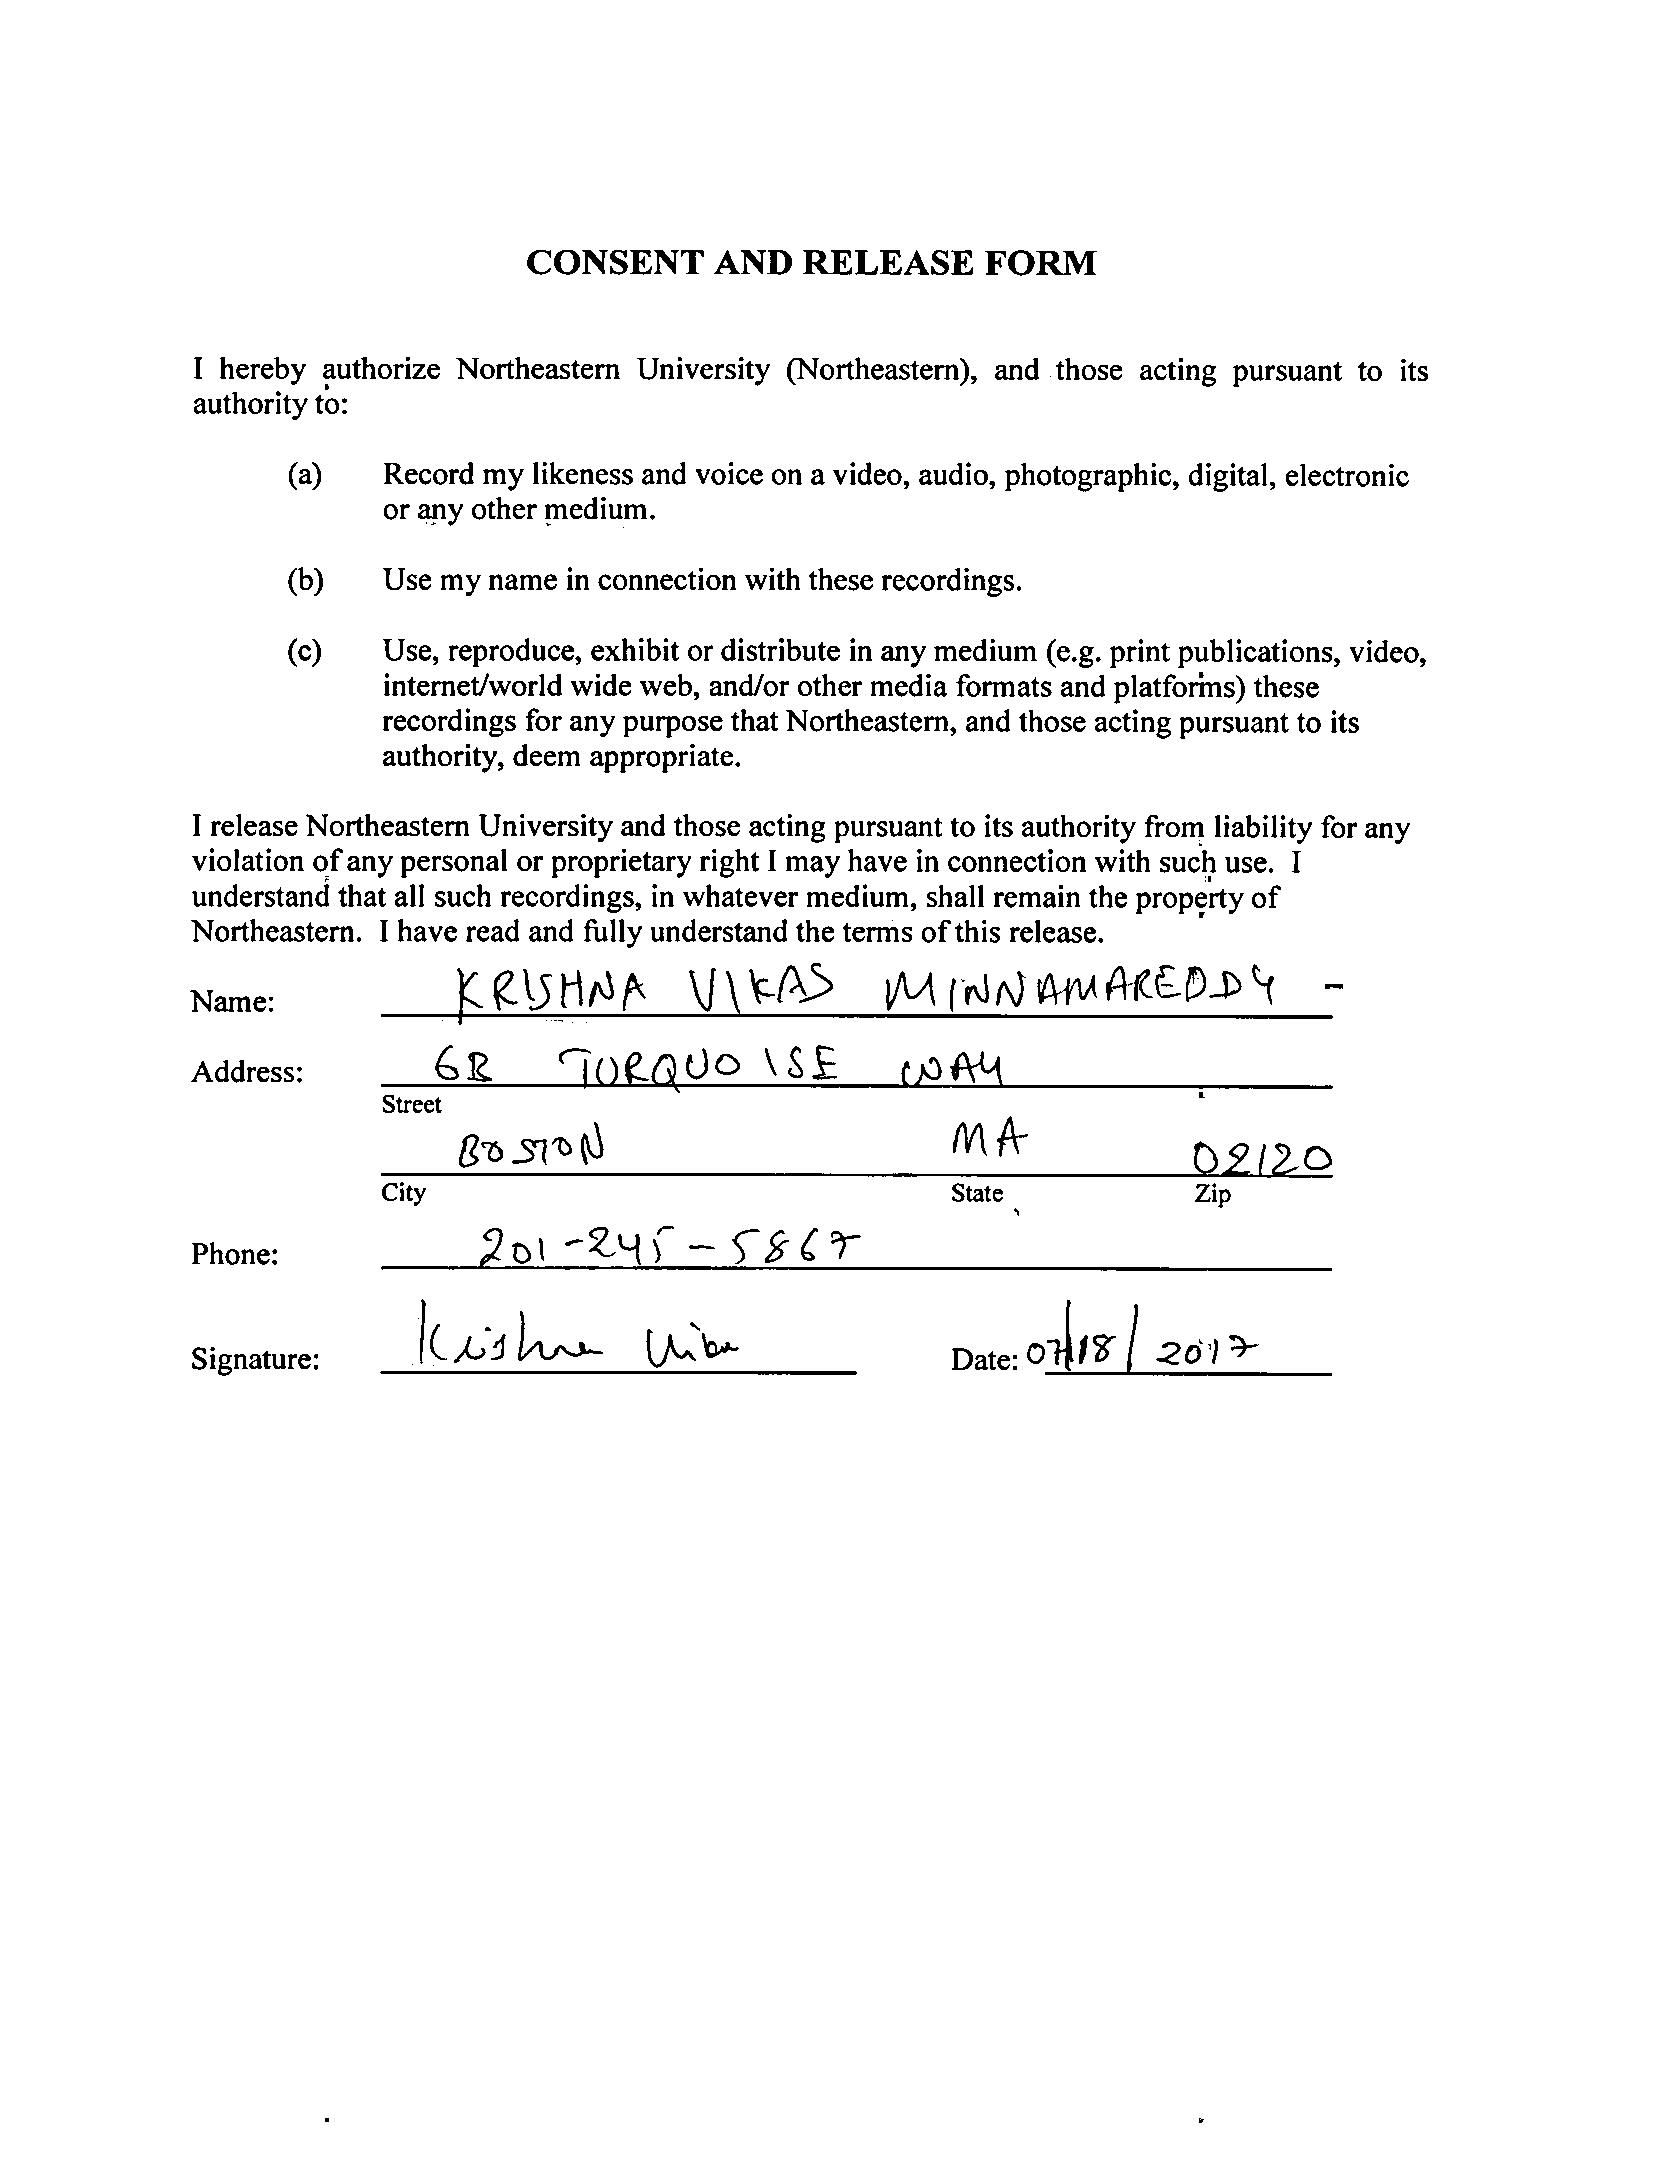 CONSENT AND RELEASE FORM
I hereby authorize Northeastern University (Northeastern), and those acting pursuant to its
authority to:
(a) Record my likeness and voice on a video, audio, photographic, digital, electronic
or any other medium.
(b) Use my name in connection with these recordings.
(c) Use, reproduce, exhibit or distribute in any medium (e.g. print publications, video,
internet/world wide web, and/or other media formats and platforms) these
recordings for any purpose that Northeastern, and those acting pursuant to its
authority, deem appropriate.
I release Northeastern University and those acting pursuant to its authority from liability for any
violation of any personal or proprietary right I may have in connection with such use. I
understand that all such recordings, in whatever medium, shall remain the property of
Northeastern. I have read and fully understand the terms of this release.
Name: KRISHNA VIKAS MINNAMAREDDY -
Address: TURQUOISE WAY
Street
BOSTON MA 02120
City State Zip
Phone: 201-245-5867
Signature: Krishna
Date: 07/18/2017